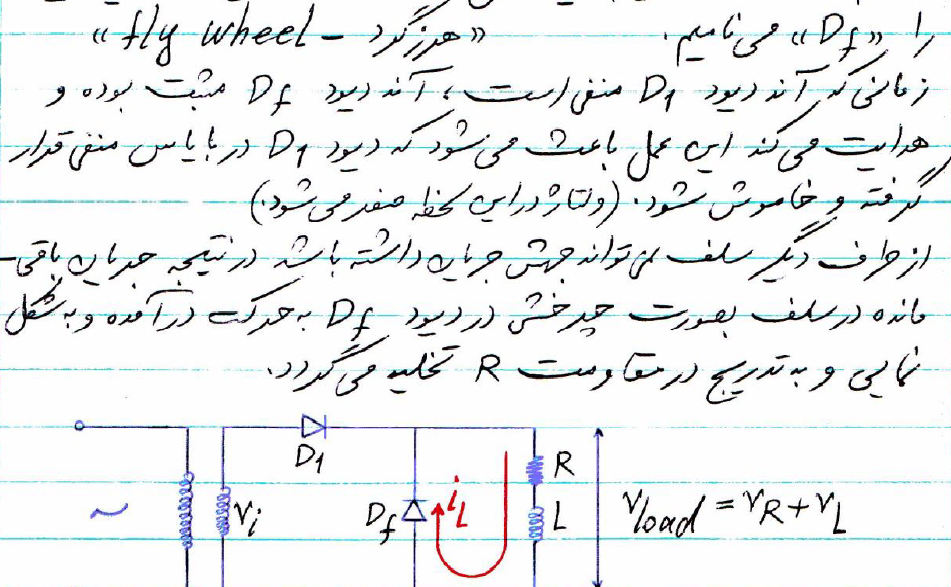 را «Df» می نامیم. «هرزگرد – fly wheel»
زمانی که آند دیود D1 منفی است؛ آند دیود Df مثبت بوده و
هدایت می کند این عمل باعث می شود که دیود D1 در بایاس منفی قرار
گرفته و خاموش شود. (ولتاژ در این لحظه صفر می شود.)
از طرف دیگر سلف نمی تواند جهش جریان داشته باشد در نتیجه جریان باقی-
مانده در سلف بصورت چرخش در دیود Df به حرکت درآمده و به شکل
نمایی و به تدریج در مقاومت R تخلیه می گردد.
D1
R
~ Vi Df iL L Vload = VR + VL